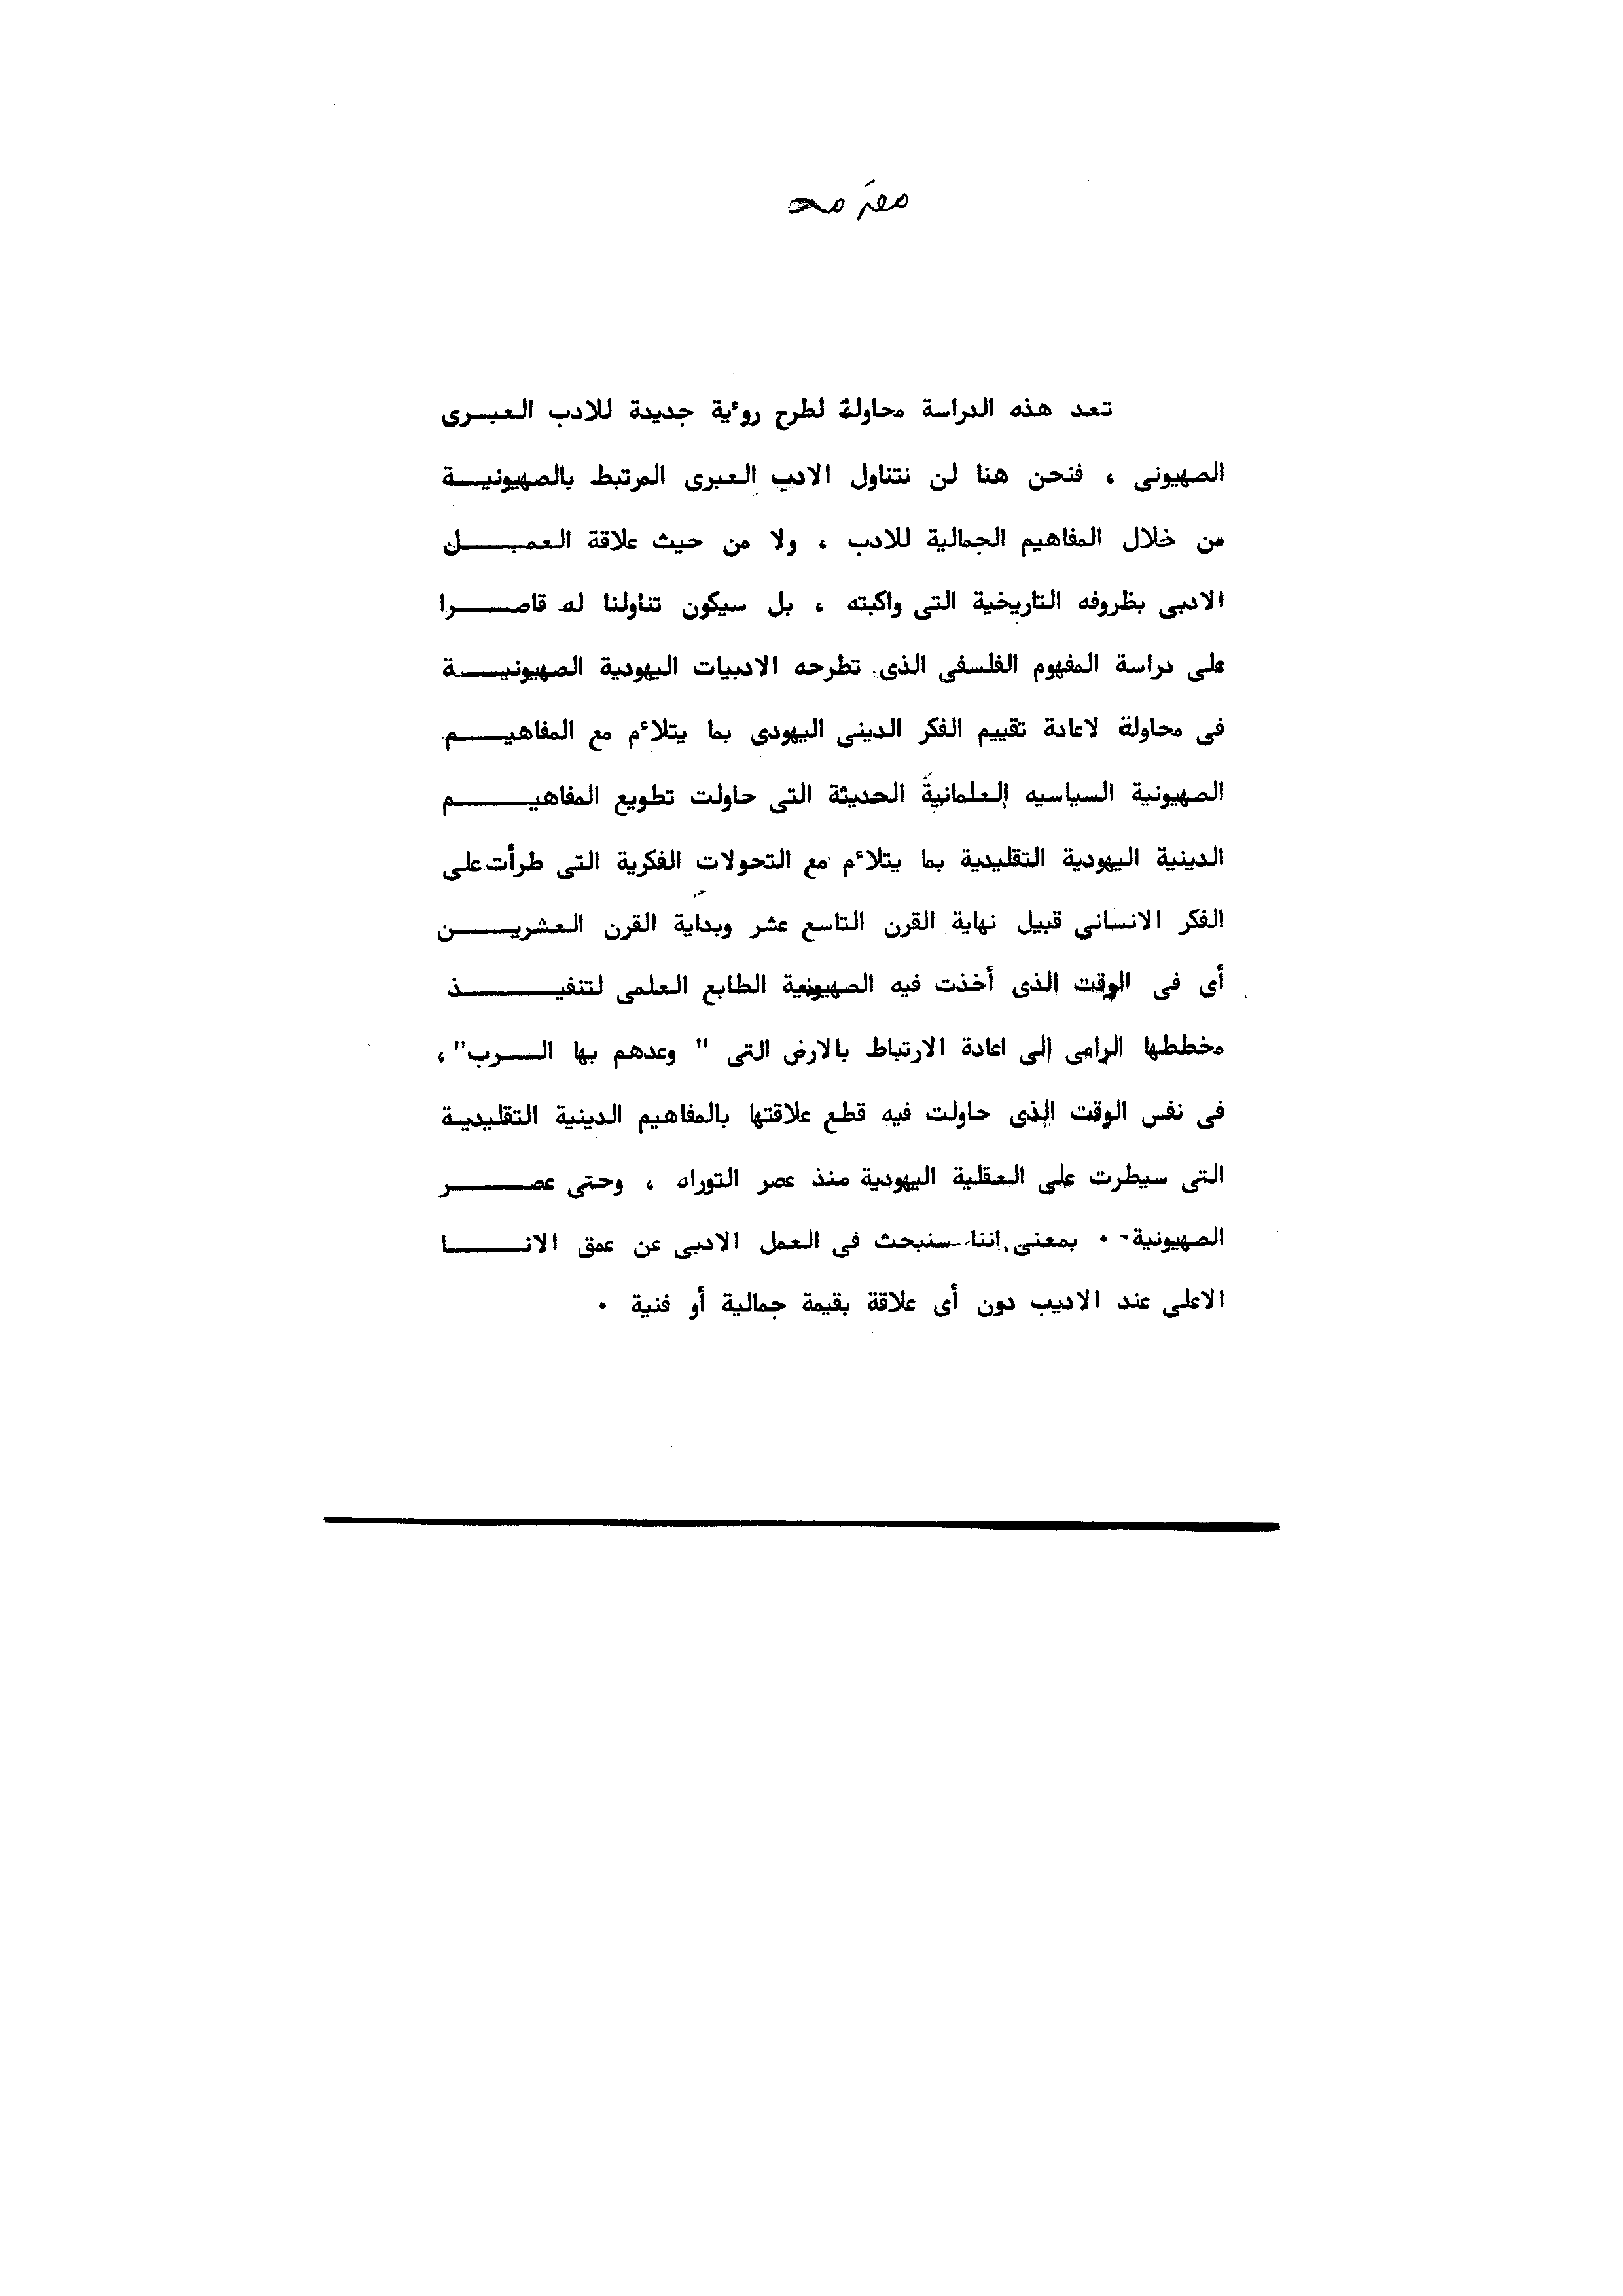 مقدمه
تعد هذه الدراسة محاولة لطرح روءية جديدة للادب العبرى
الصهيونى ، فنحن هنا لن نتناول الادب العبرى المرتبط بالصهيونية
من خلال المفاهيم الجمالية للادب ، ولا من حيث علاقة العمل
الادبى بظروفه التاريخية التى واكبته ، بل سيكون تناولنا له قاصرا
على دراسة المفهوم الفلسفى الذى تطرحه الادبيات اليهودية الصهيونية
فى محاولة لاعادة تقييم الفكر الدينى اليهودى بما يتلاءم مع المفاهيم
الصهيونية السياسيه العلمانية الحديثة التى حاولت تطويع المفاهيم
الدينية اليهودية التقليدية بما يتلاءم مع التحولات الفكرية التى طرأت على
الفكر الانسانى قبيل نهاية القرن التاسع عشر وبداية القرن العشرين
أى فى الوقت الذى أخذت فيه الصهيونية الطابع العلمى لتنفيذ
مخططها الرامى الى اعادة الارتباط بالارض التى " وعدهم بها الرب" ،
فى نفس الوقت الذى حاولت فيه قطع علاقتها بالمفاهيم الدينية التقليدية
التى سيطرت على العقلية اليهودية منذ عصر التوراه ، وحتى عصر
الصهيونية ٠٠ بمعنى اننا سنبحث فى العمل الادبى عن عمق الانا
الاعلى عند الاديب دون أى علاقة بقيمة جمالية أو فنية ٠